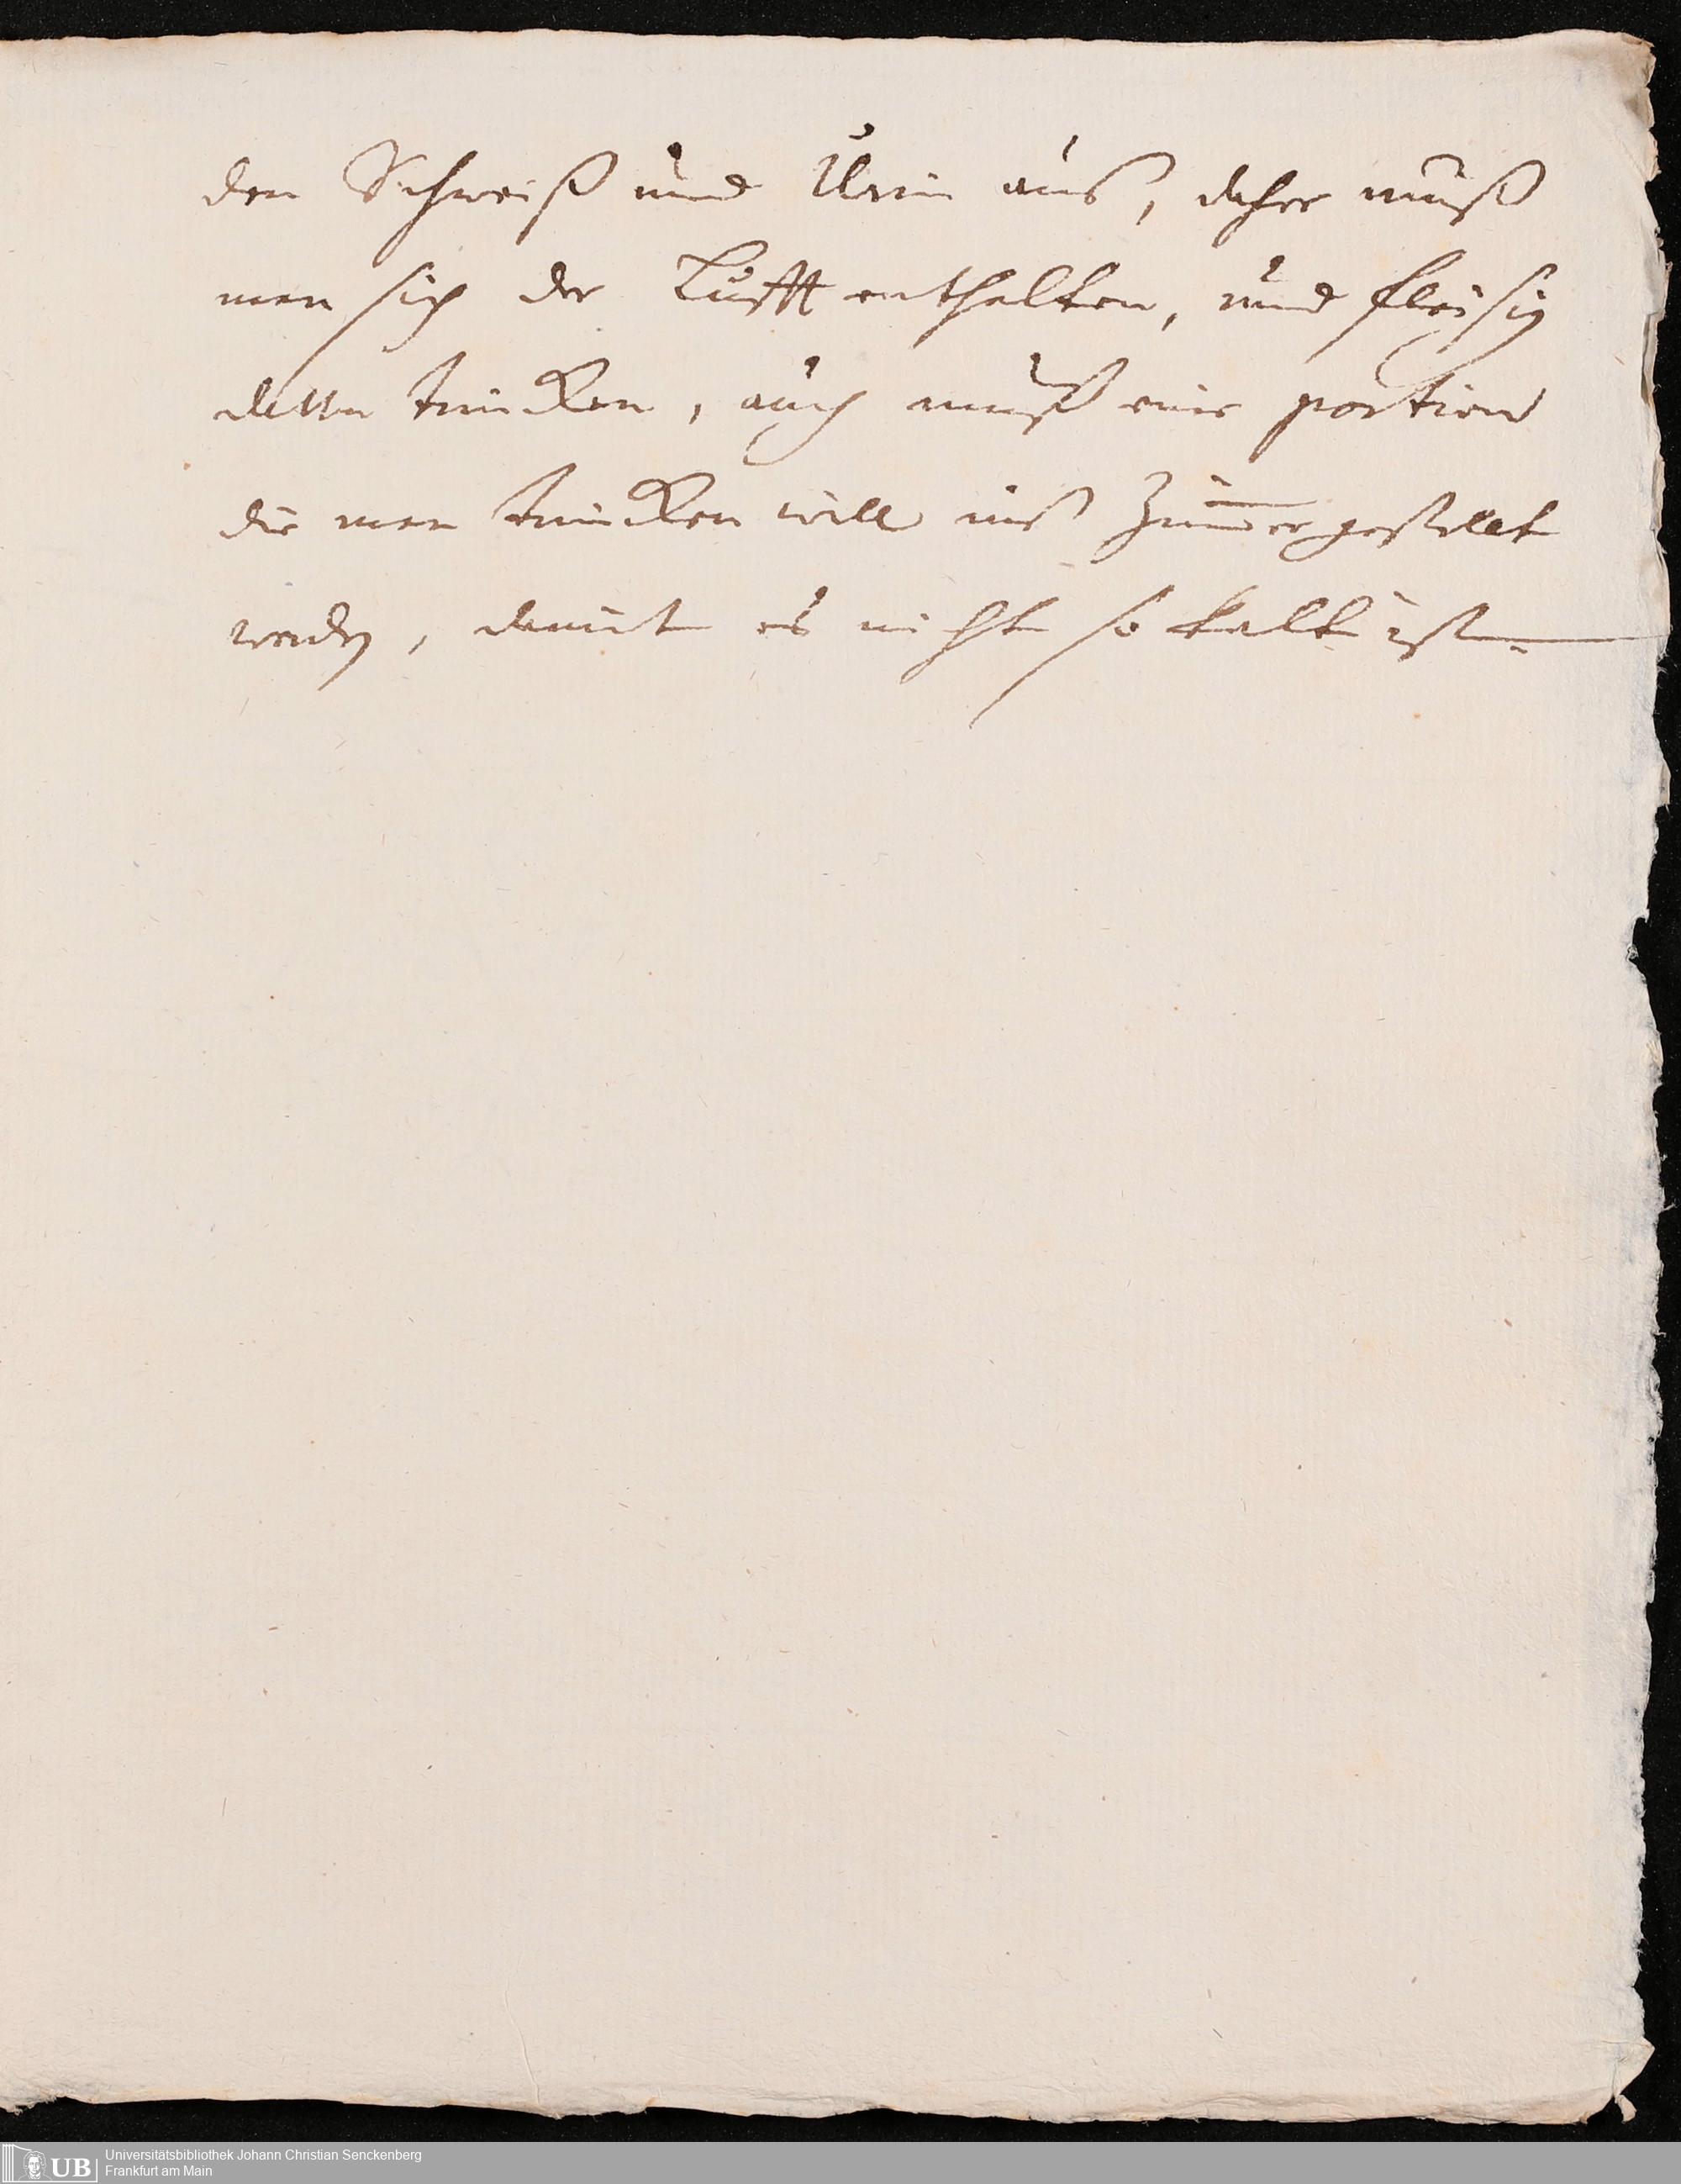 den Schweiß und Urin aus, daher muß
man sich der Lufft enthalten, und fleisig
trincken, auch muß eine portion
die man trincken will ins Zim̅er gestellet
werden, damit es nicht so kalt ist.
UB
Universitätsbibliothek Johann Christian Senckenberg
Frankfurt am Main